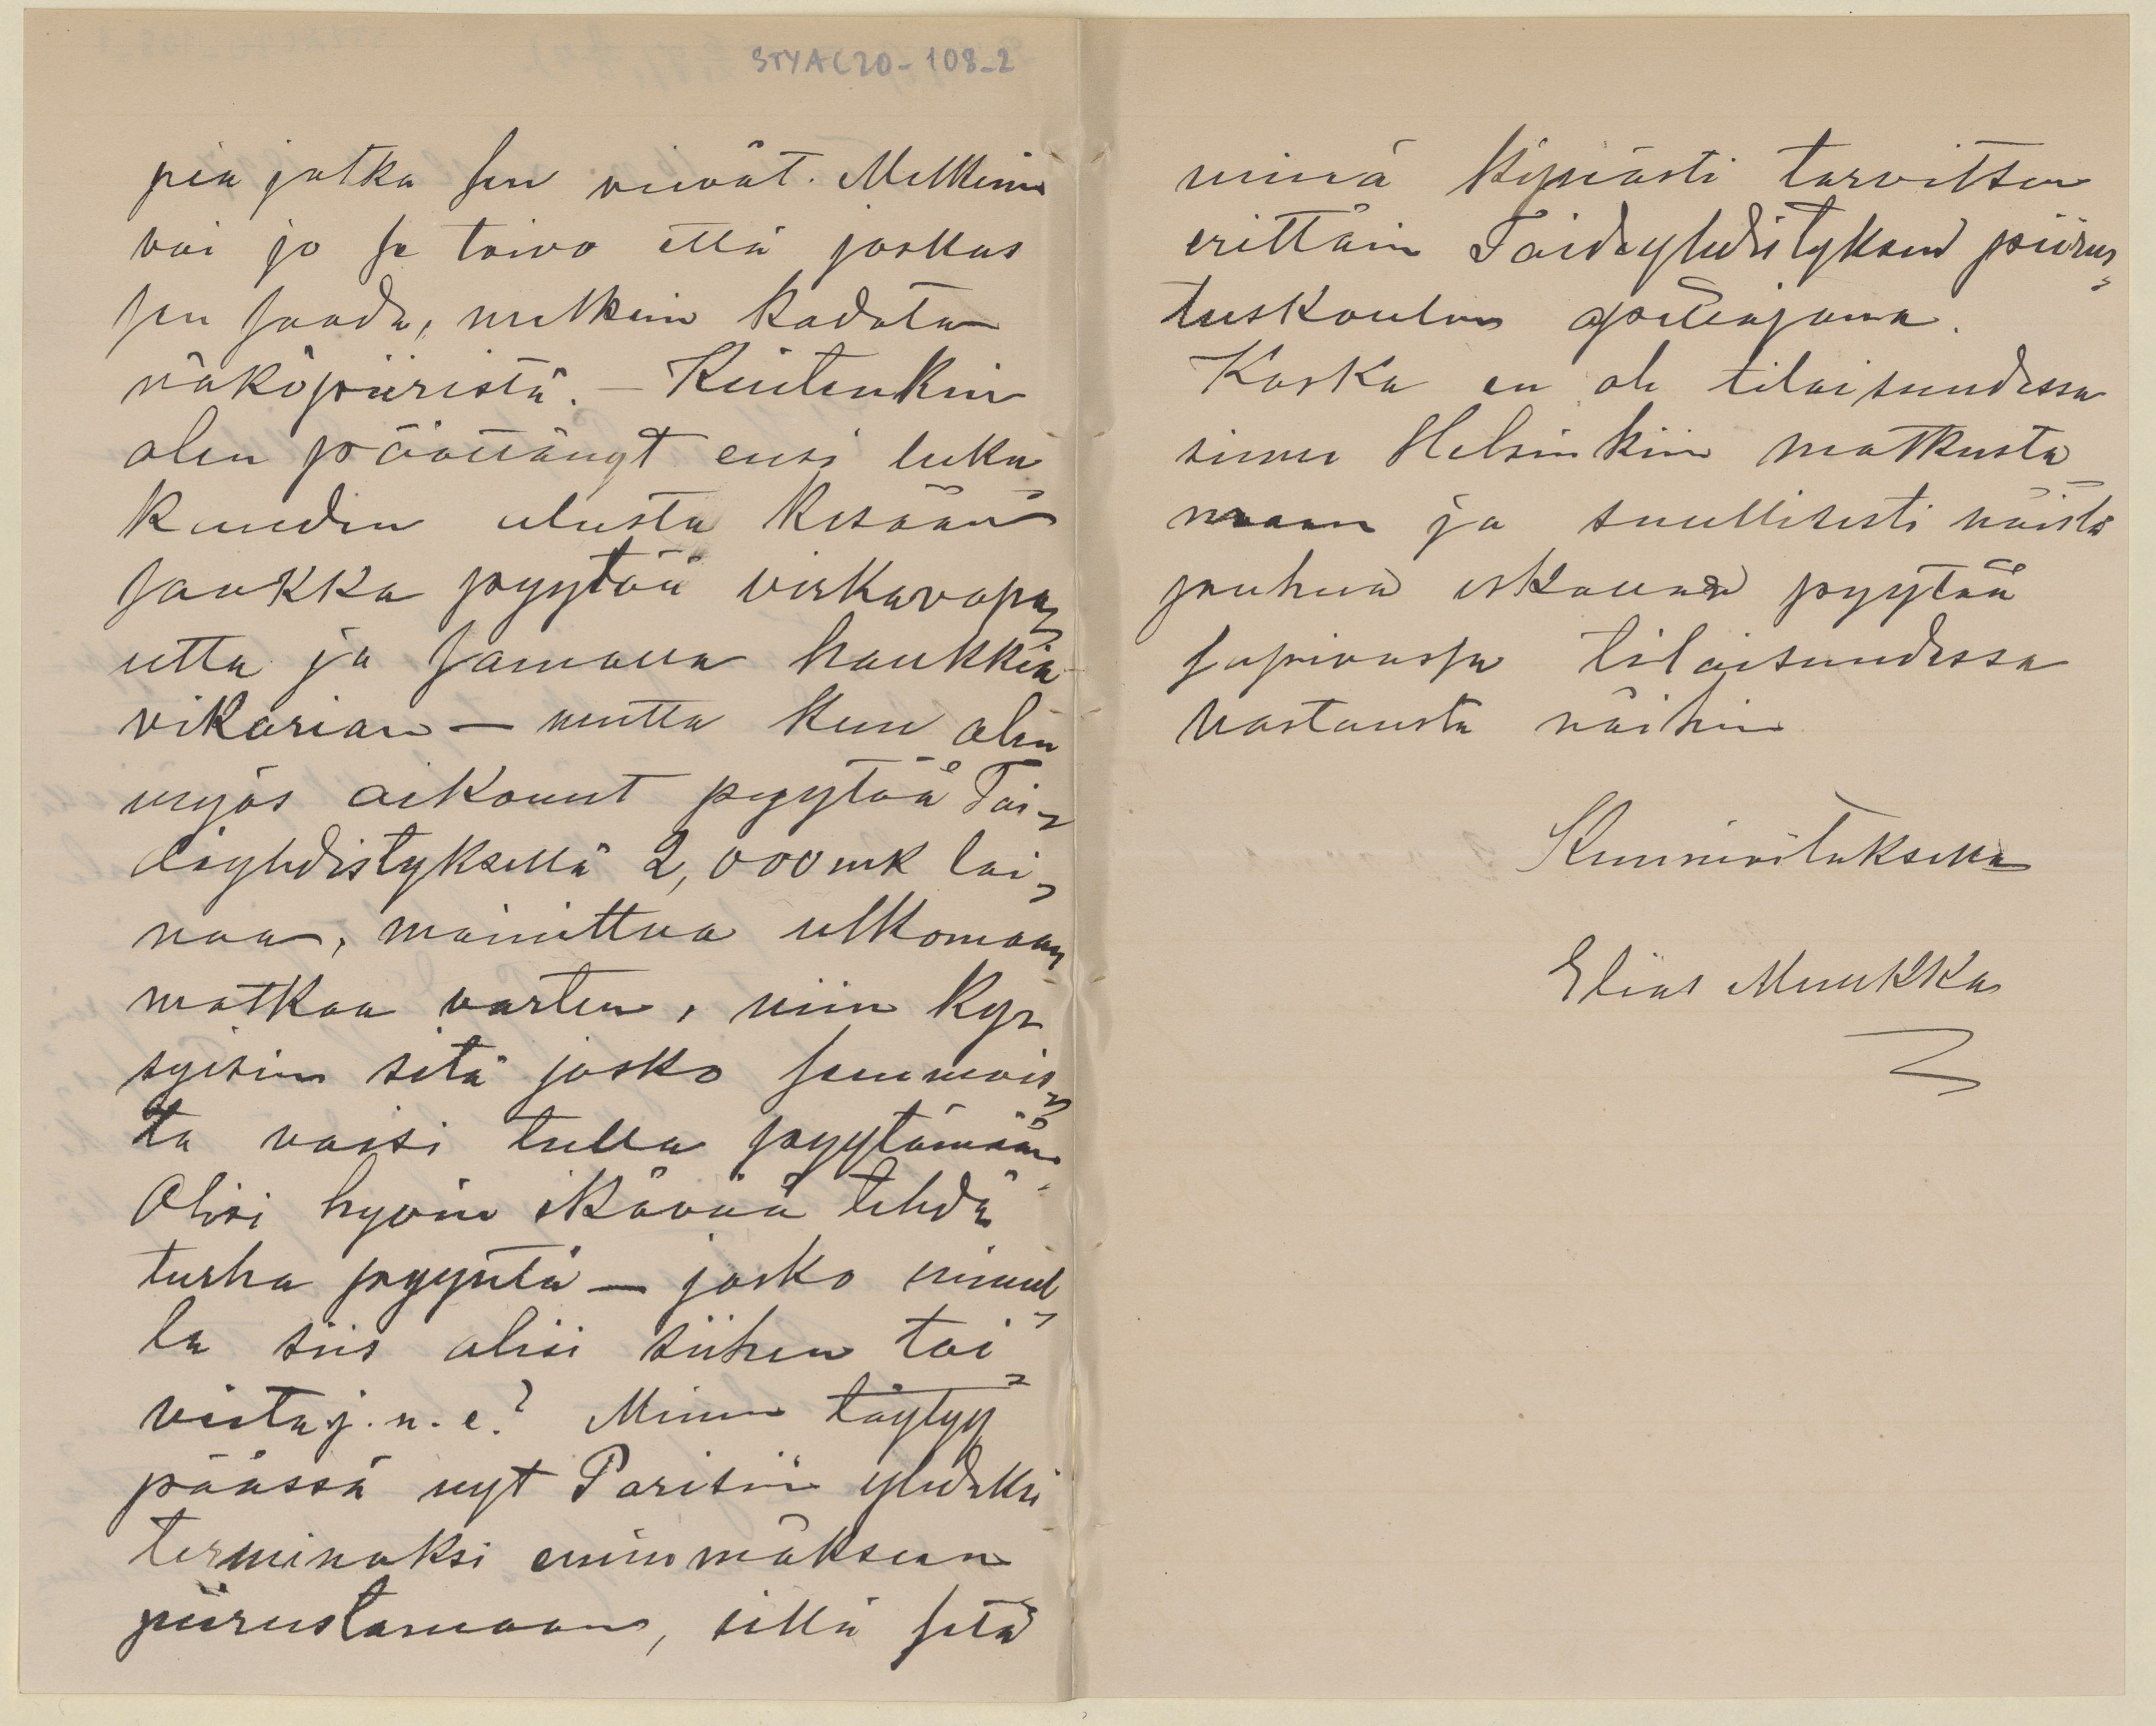 STYA C20-108_2
pia jotka sen vievät. Melkein
voi jo se toivo että joskus
sen saada, melkein kadota
näköpiiristä. — Kuitenkin
olen päättänyt ensi luku
kauden alusta kesään
saakka pyytää virkavapa-
utta ja samalla hankkia
vikarian — mutta kun olen
myös aikonut pyytää Tai-
deyhdistykseltä 2,000 mk lai-
naa, mainittua ulkomaan
matkaa varten, niin ky-
syisin sitä josko semmois-
ta voisi tulla pyytämään.
Olisi hyvin ikävää tehdä
turha pyyntö — josko minul-
la siis olisi siihen toi-
veita j.n.e.? Minun täytyy
päässä nyt Parisiin yhdeksi
terminaksi enimmäkseen
piirustamaan, sillä sitä
minä kipeästi tarvitsen
erittäin Taideyhdistyksen piirus-
tuskoulun opettajana.
Koska en ole tilaisuudessa
sinne Helsinkiin matkusta
maan ja suullisesti näistä
puhua uskallan pyytää
sopivassa tilaisuudessa
vastausta näihin
Kunnioituksella
Elias Muukka